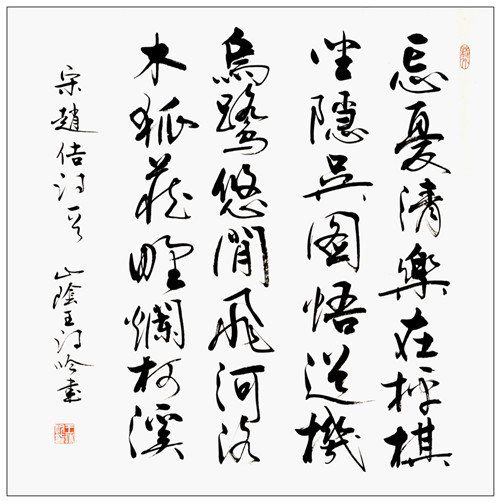 忘憂清樂在枰棋
坐隱吳圖悟道機
烏鷺悠閒飛河洛
木狐藏野爛柯溪
宋趙佶詩一首 山陰王詩吟書